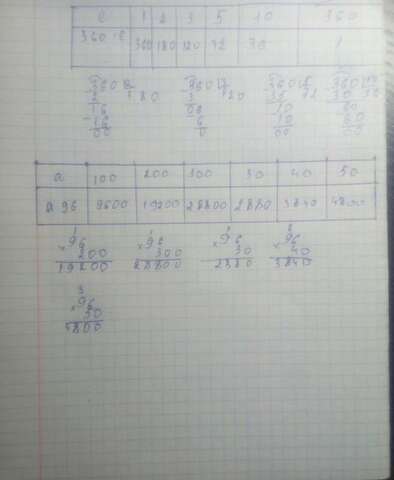 c 1 2 3 5 10 360
360:c 360 180 120 72 36 1
360 2 180
2
16
16
00
360 3 120
3
06
6
0
360 5 72
35
10
10
00
360 10 36
30
60
60
00
a 100 200 300 30 40 50
a 96 9600 19200 28800 2880 3840 4800
1
×96
200
19200
1
×96
300
28800
1
×96
30
2880
2
×96
40
3840
3
×96
50
4800